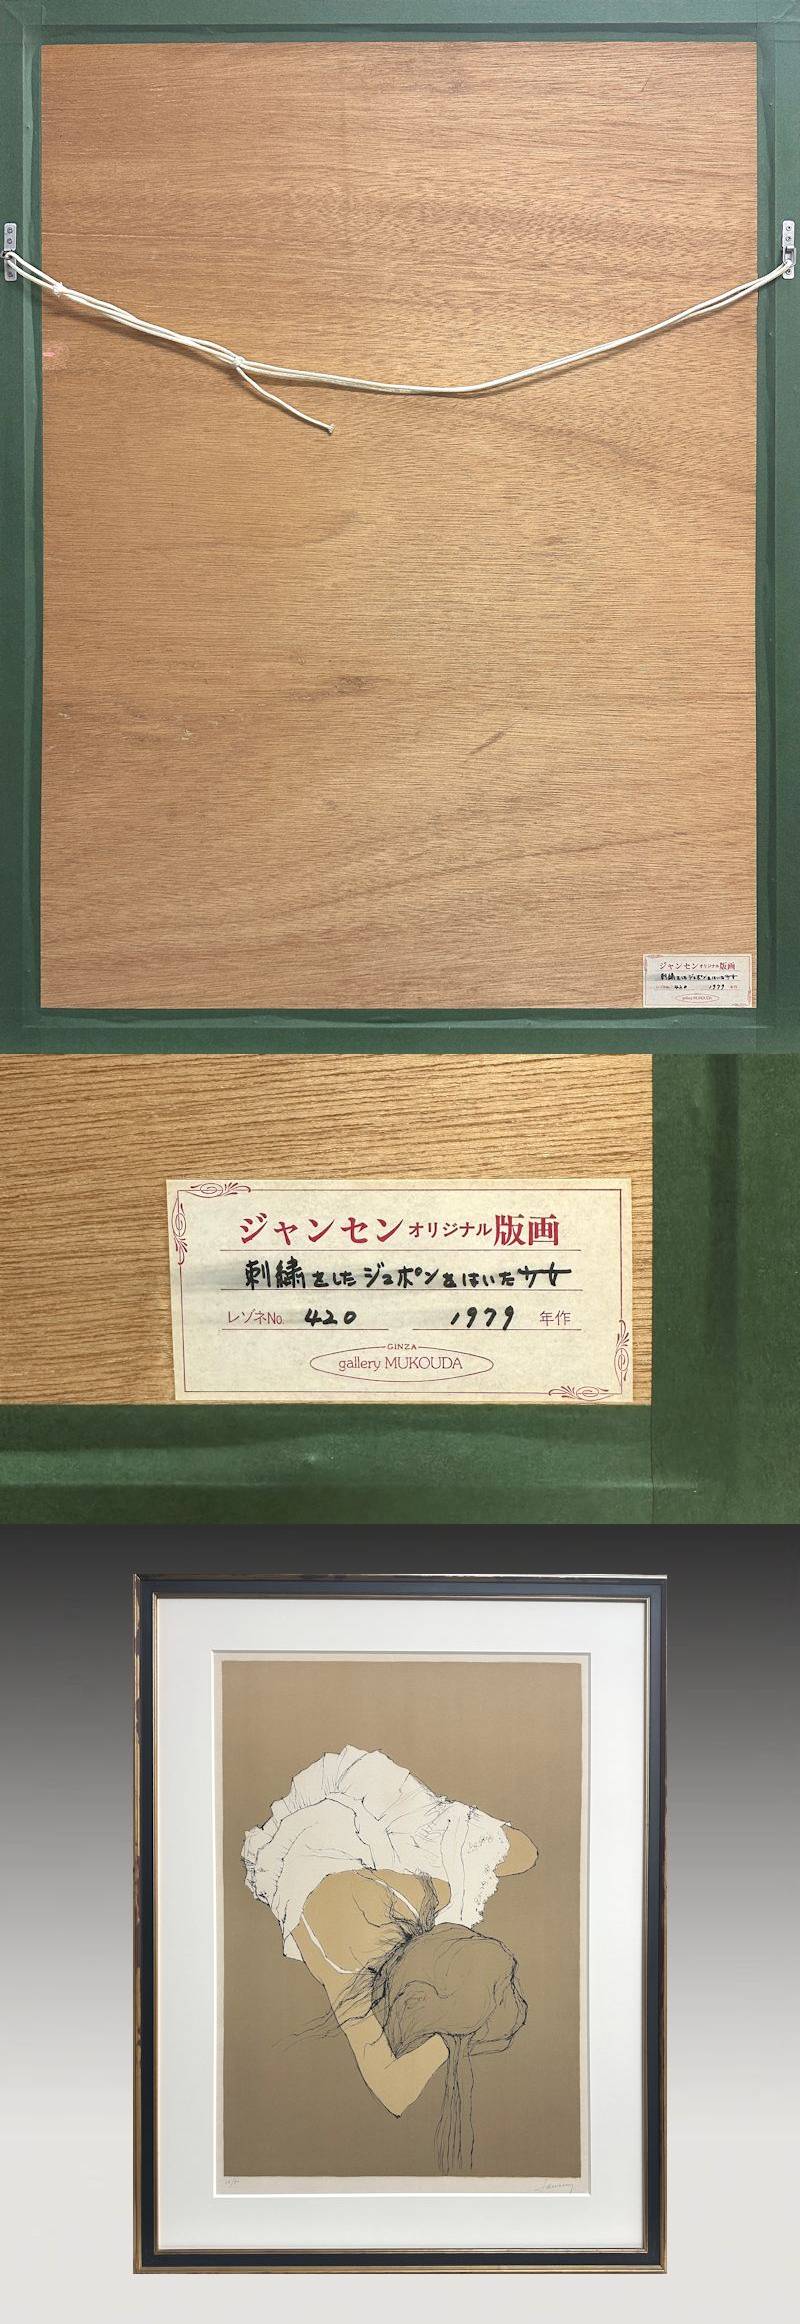 ジャンセンオリジナル版画
刺繍をしたジュポンをはいた
レゾネNo. 420 1979 年作
GINZA
gallery MUKOUDA
ジャンセンオリジナル版画
刺繍をしたジュポンをはいた
レゾネNo. 420 1979 年作
GINZA
gallery MUKOUDA
Jansem